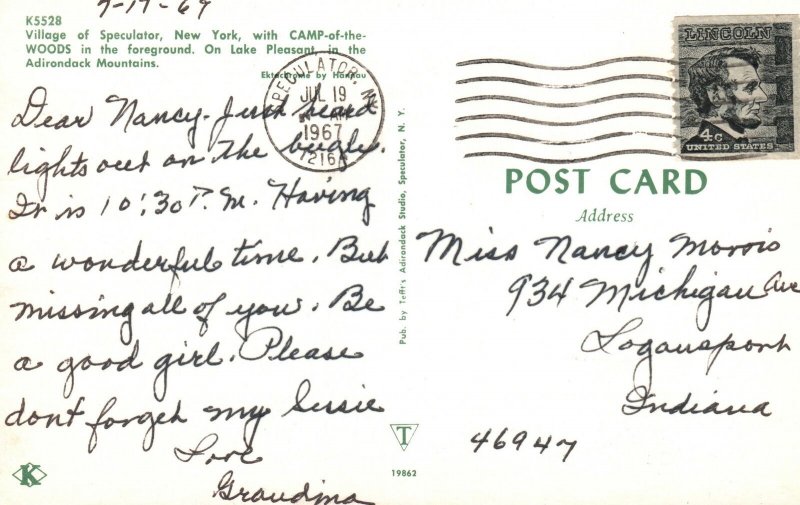 7-17-67
K5528
Village of Speculator, New York, with CAMP-of-the-
WOODS in the foreground. On Lake Pleasant, in the
Adirondack Mountains.
Ektachrome by Hannau
Dear Nancy. Just heard
lights out on the bugle.
It is 10:30 P.M. Having
a wonderful time. But
missing all of you. Be
a good girl. Please
dont forget my Sussie
Love
Grandma
Pub. by Tefft's Adirondack Studio, Speculator, N. Y.
T
19862
K
SPECULATOR, N.Y.
JUL 19
AM
1967
12164
LINCOLN
4c
UNITED STATES
POST CARD
Address
Miss Nancy Morris
934 Michigan Ave
Logansport
Indiana
46947